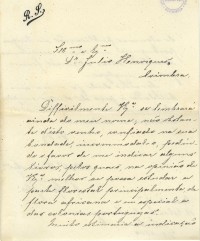 R. S.
Ill.mo e Ex.mo
Sr. Julio Henriques
Coimbra
Difficilmente V. Ex.ª se lembrará
ainda do meu nome; não obstante
d'isto venho, confiado na sua
bondade, incommodal-o, pedir
o favor de me indicar alguns
livros, pelos quaes na opinião de
V. Ex.ª melhor se possa estudar a
parte florestal principalmente da
flora africana e em especial a
das colonias portuguezas.
Muito estimaria a indicação